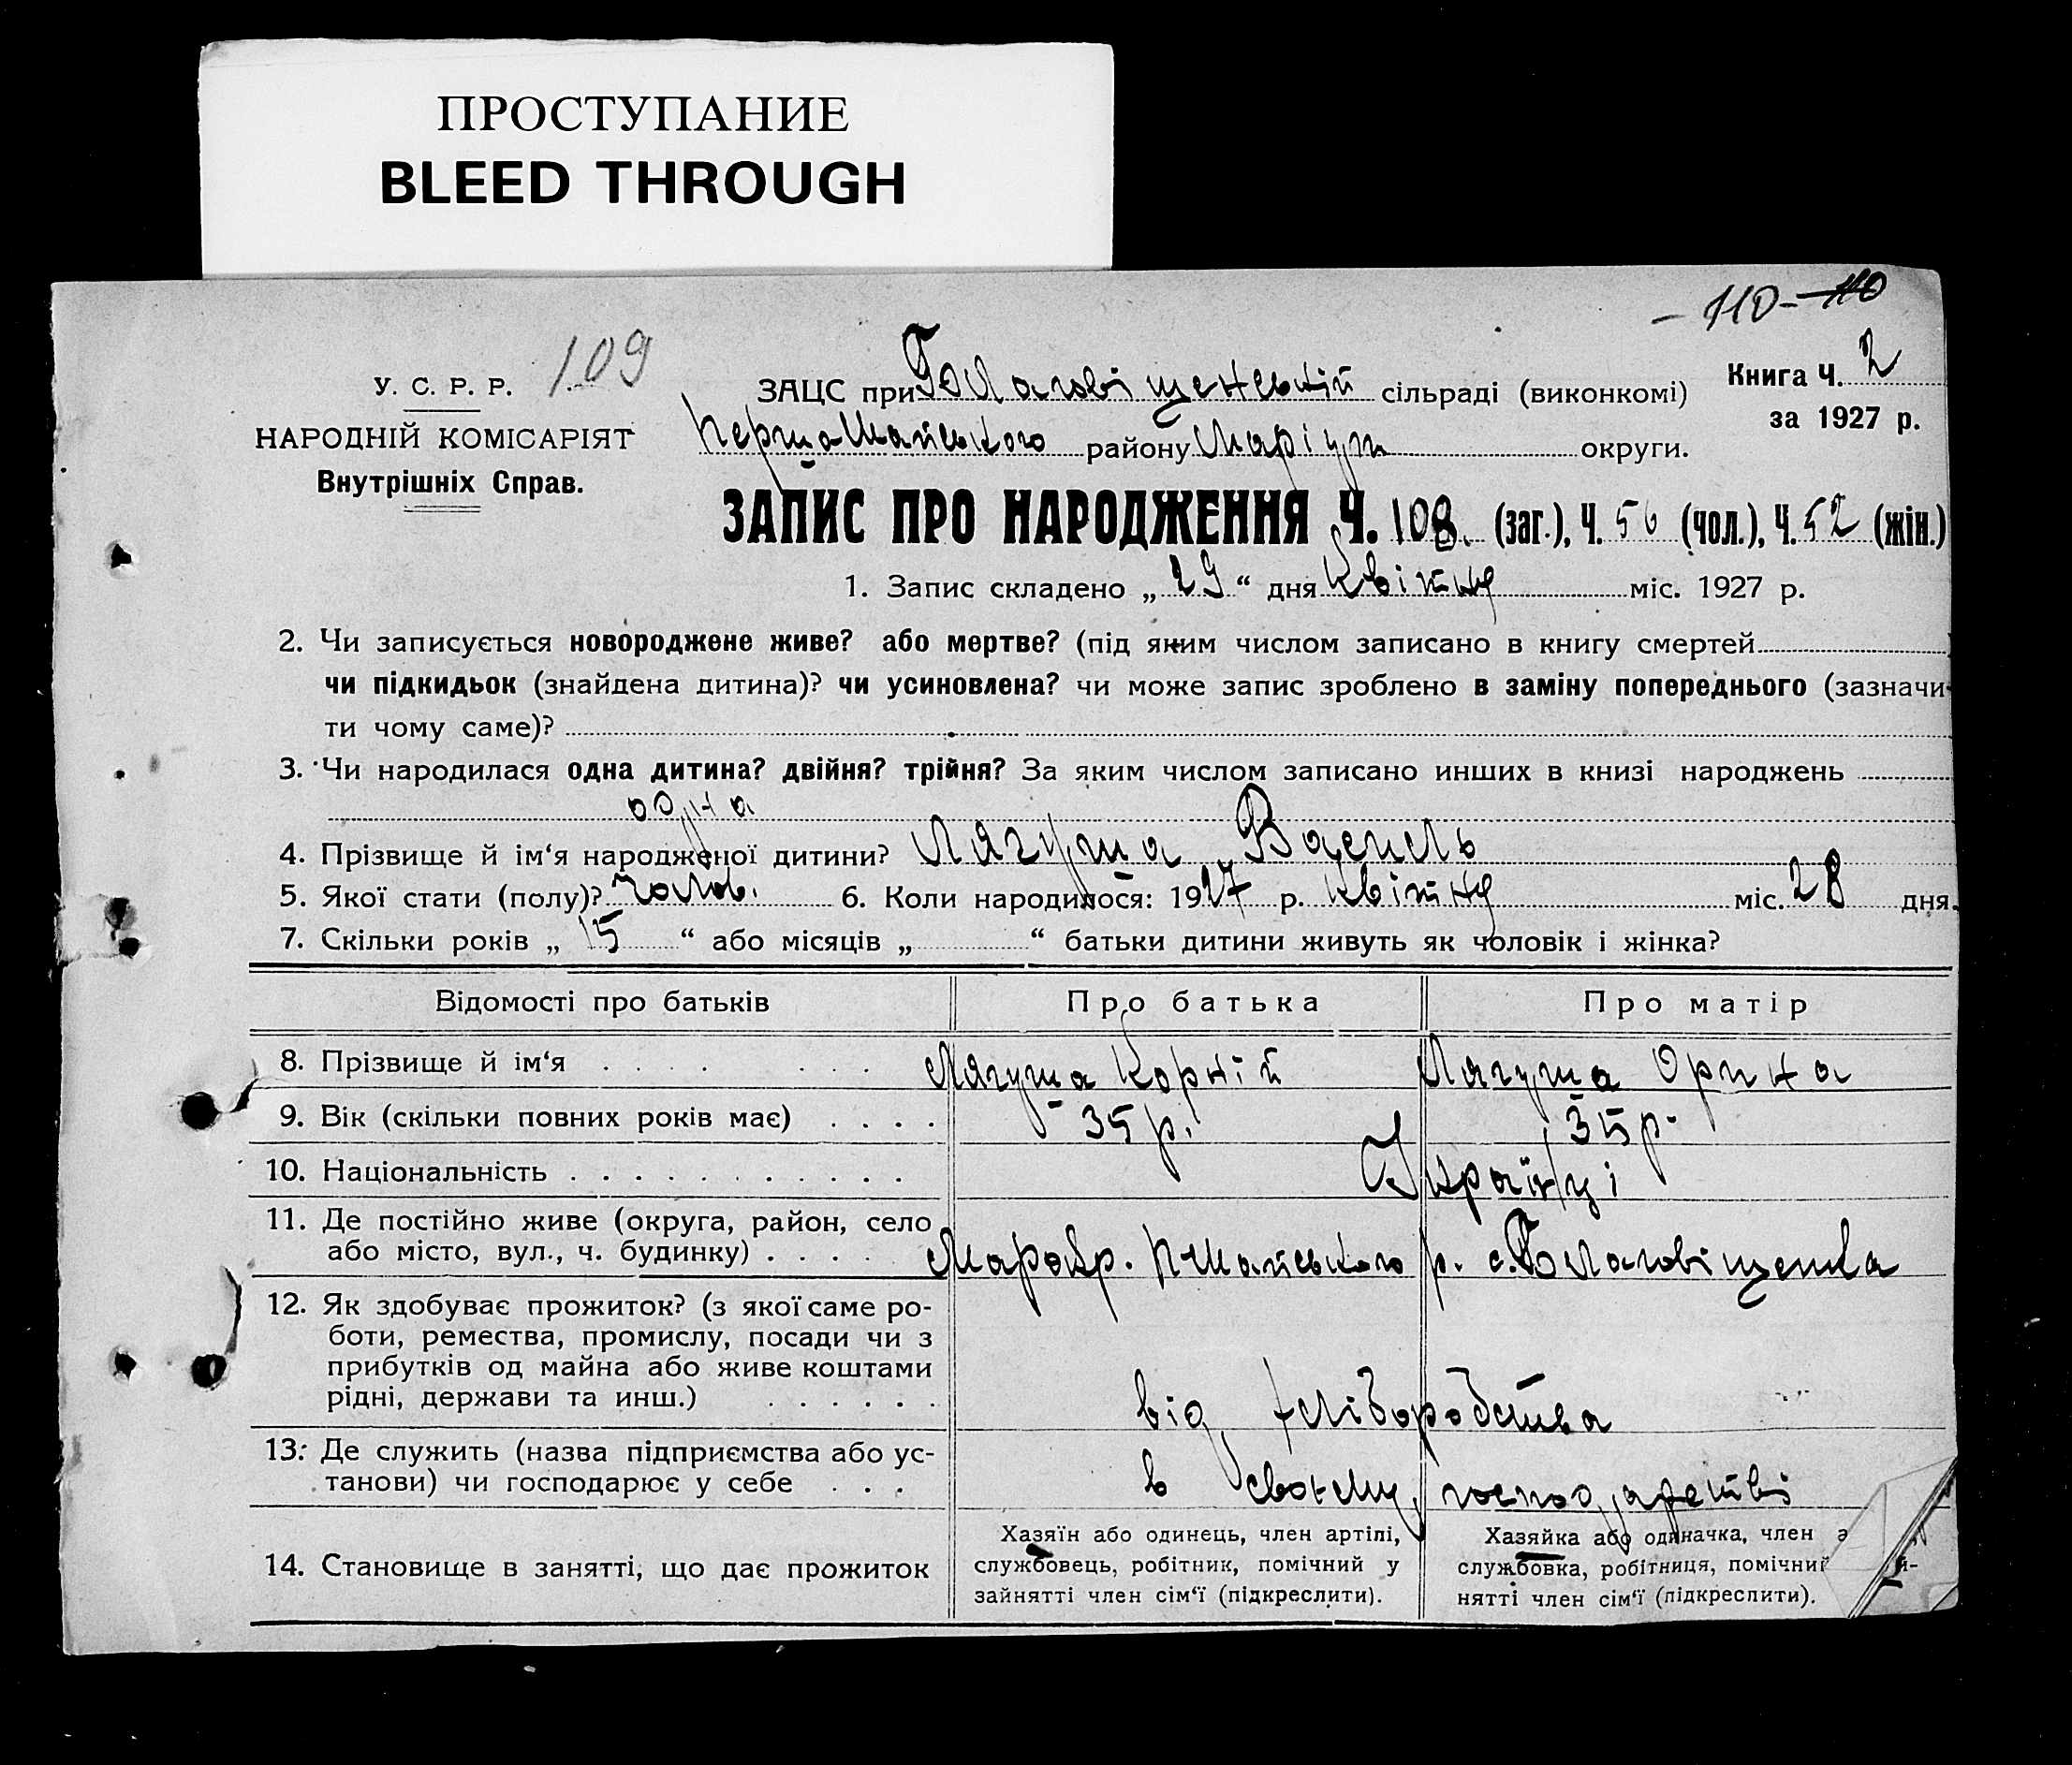 ПРОСТУПАНИЕ
BLEED THROUGH
- 110 - 110
У. С. Р. Р. 109
НАРОДНІЙ КОМІСАРІЯТ
Внутрішніх Справ.
ЗАЦС при Благовіщенській сільраді (виконкомі)
Книга Ч. 2
за 1927 р.
Першо Майського району Маріуп округи.
ЗАПИС ПРО НАРОДЖЕННЯ Ч. 108. (заг.), Ч. 56 (чол.), Ч. 52 (жін.)
1. Запис складено „ 29 “ дня Квітня міс. 1927 р.
2. Чи записується новороджене живе? або мертве? (під яким числом записано в книгу смертей
чи підкидьок (знайдена дитина)? чи усиновлена? чи може запис зроблено в заміну попереднього (зазначи-
ти чому саме)?
3. Чи народилася одна дитина? двійня? трійня? За яким числом записано инших в книзі народжень
одна
4. Прізвище й ім‘я народженої дитини? Лягуша Василь
5. Якої стати (полу)? чолов. 6. Коли народилося: 1927 р. Квітня міс. 28 дня.
7. Скільки років „ 15 “ або місяців „ “ батьки дитини живуть як чоловік і жінка?
Відомості про батьків Про батька Про матір
8. Прізвище й ім‘я Лягуша Корній Лягуша Орина
9. Вік (скільки повних років має) 35 р. 35 р.
10. Національність Українці
11. Де постійно живе (округа, район, село
або місто, вул., ч. будинку) Маріокр. П-Майського р. с. Благовіщенка
12. Як здобуває прожиток? (з якої саме ро-
боти, ремества, промислу, посади чи з
прибутків од майна або живе коштами
рідні, держави та инш.) від хліборобства
13. Де служить (назва підприємства або ус-
танови) чи господарює у себе в своєму господарстві
14. Становище в занятті, що дає прожиток
Хазяїн або одинець, член артілі,
службовець, робітник, помічний у
зайнятті член сім‘ї (підкреслити).
Хазяйка або одиначка, член а
службовка, робітниця, помічний
нятті член сім‘ї (підкреслити).